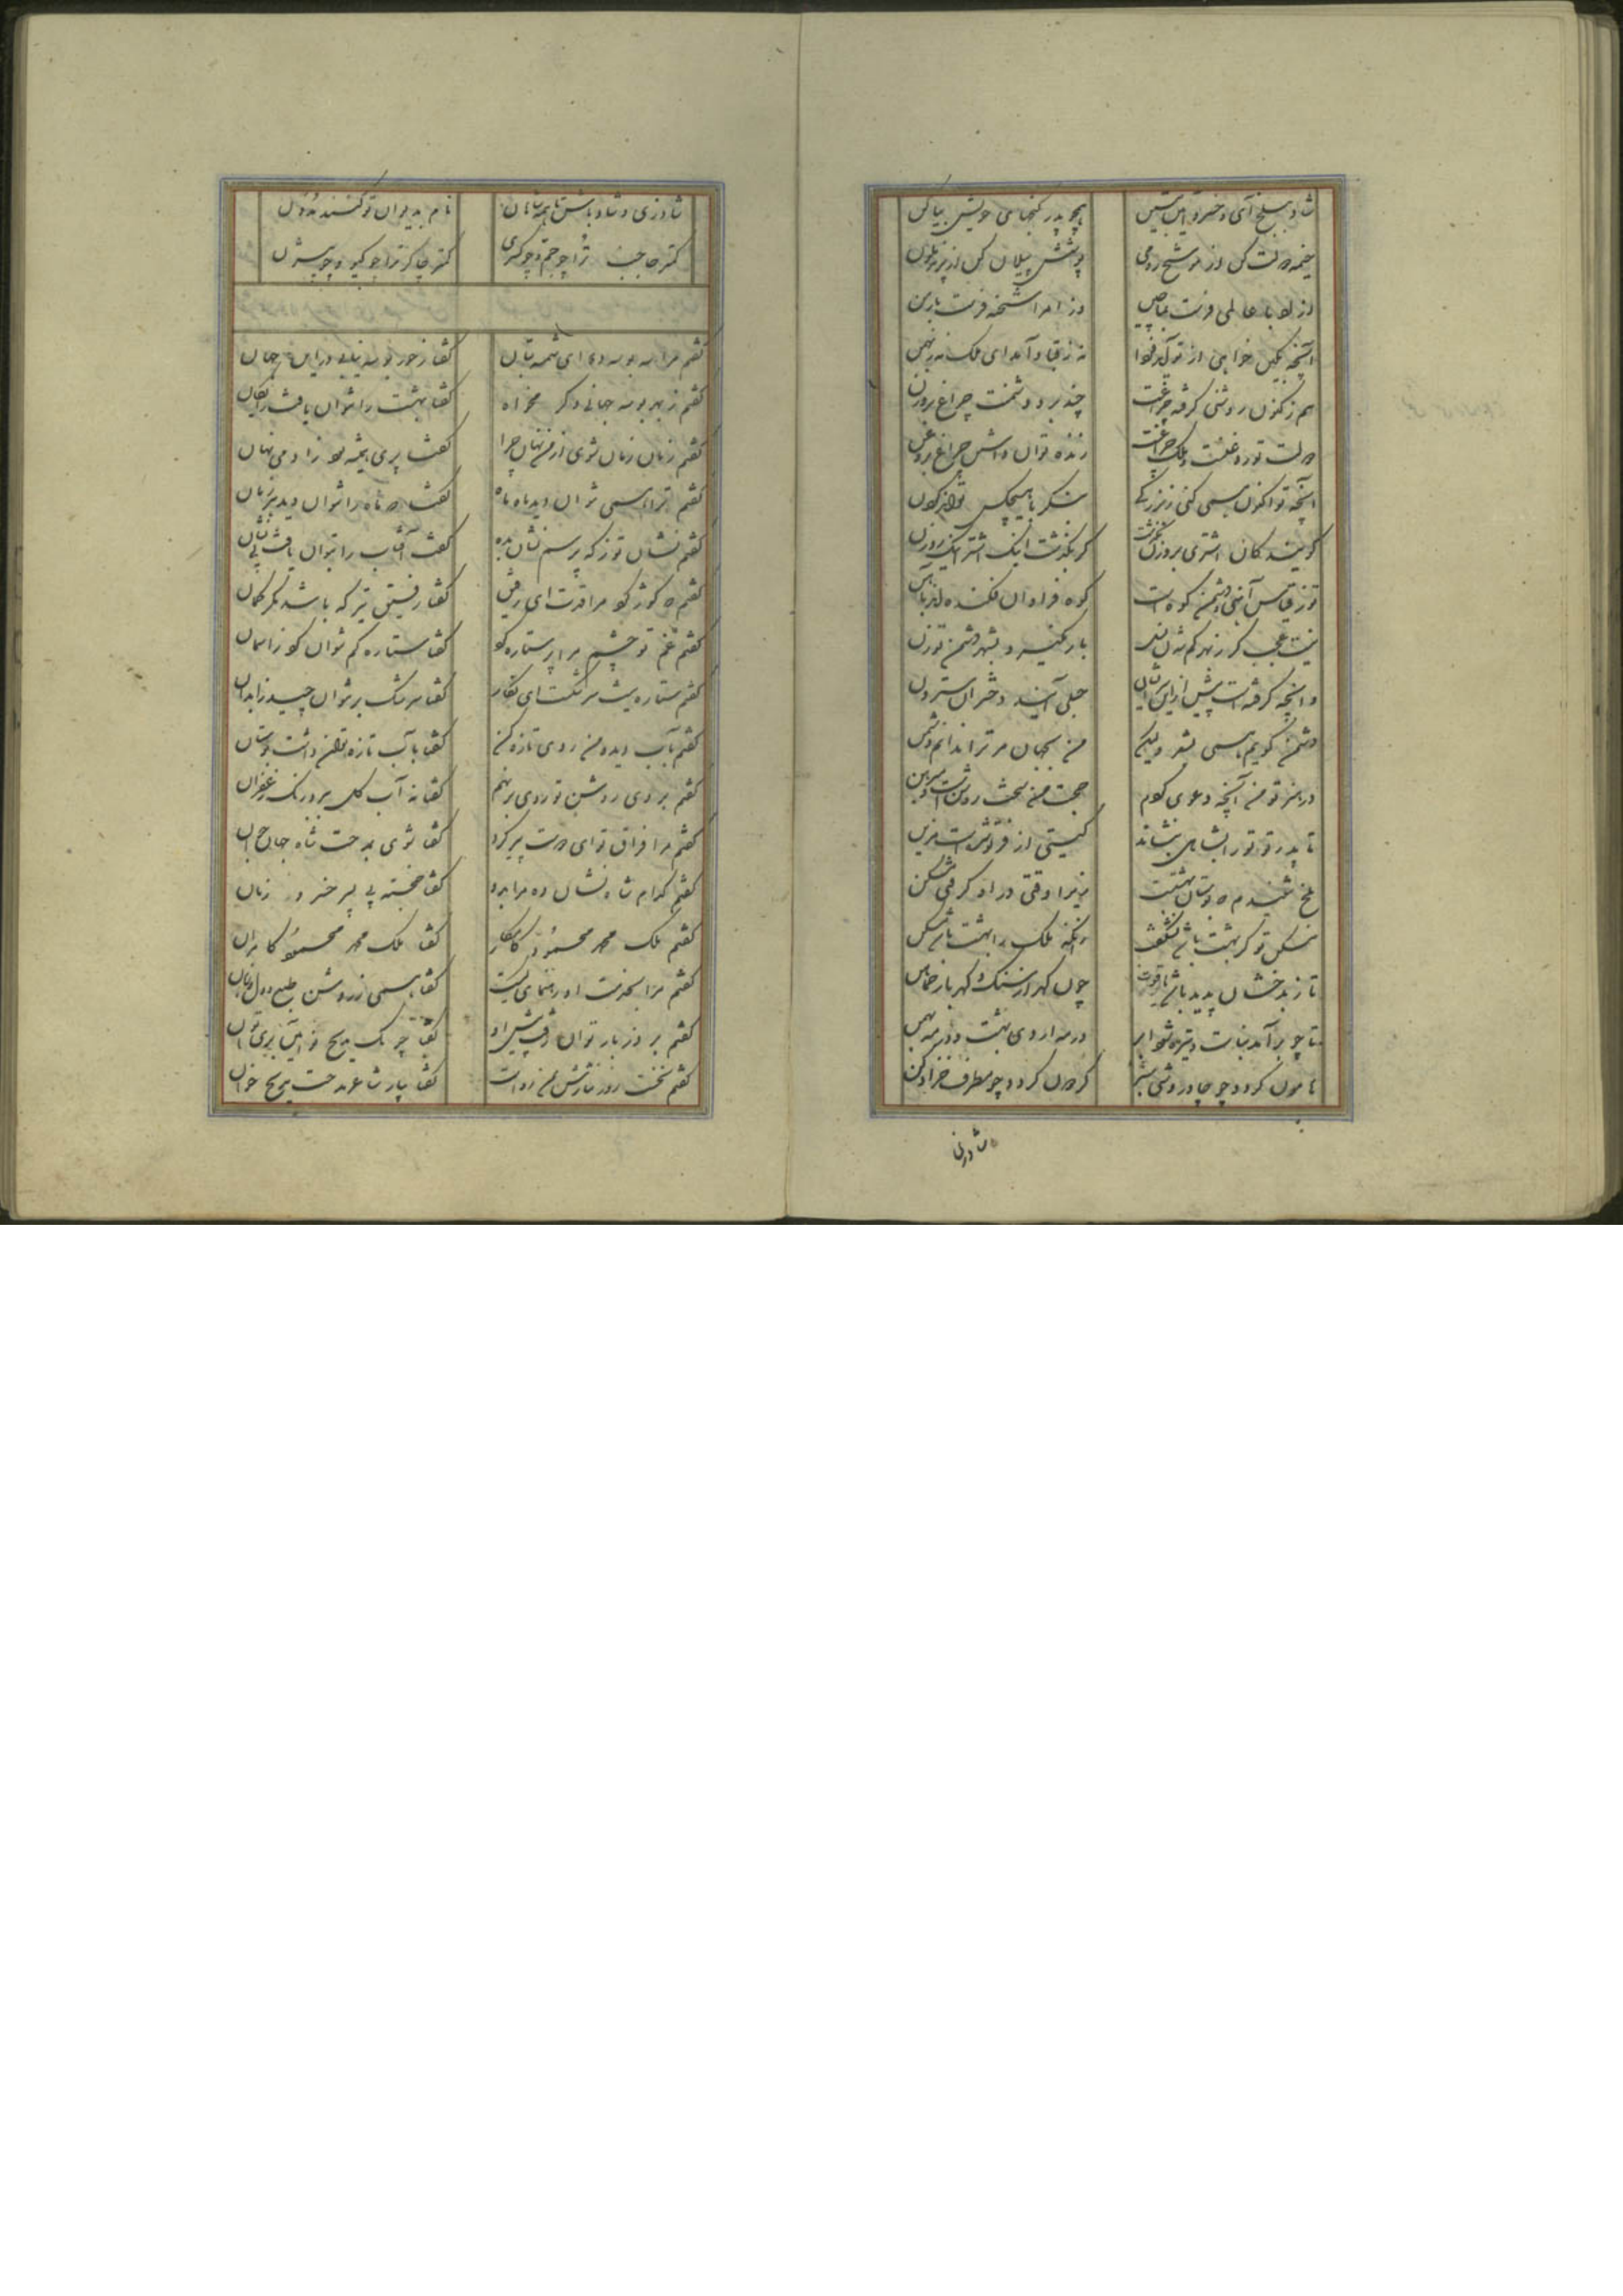 شاد ببلخ آی و خسروانه بنشین همچو پدر گنجهای خویش بپاکن
خیمه دولت کن از موشح رومی پوشش پیلان کن از پرند ملون
وز امرا شحنه فرست
آنچه بکین خواهی از تو آمد فردا نه ز قباد آمد ای ملک نه ز بهمن
هم ز کنون روشنی گرفت چراغت چند برد دشمنت چراغ بروزن
دولت تو روغنست و ملک چراغست زنده توان داشتن چراغ بروغن
آنچه تو اکنون همی کنی ز بزرگی با هیچکس
گویند کان اشتری بروزن بگذشت گر بگذشت اینک اشتر اینک روزن
تو ز قیاس آهنی و دشمن کوه است کوه فراوان فکنده اند بآهن
نیست عجب گر ز بهر کم شدن بار نگیرد بشهر دشمن تو زن
وانچه گرفته است پیش ازین حبلی آیند دختران سترون
دشمن گویم همی بشعر ولیکن من بجهان مر ترا ندانم دشمن
در هنر تو من آنچه دعوی کردم حجت من سخت روشنست و مبرهن
تا پدر تو ترا بشاهی بنشاند گیتی از فر تو شدست مزین
بلخ شنیدم که بوستان بهشتست زیرا وقتی در او گرفتی مسکن
مسکن تو گر بهشت باشد نشگفت زانکه ملک را بهشت باشد مسکن
تا ز بدخشان پدید باشد یاقوت چون گهر از سنگ و کهربا ز خماهن
تا چو برآمد نبات و تیره شد ابر در مه اردی بهشت و در مه بهمن
هامون گردد چو چادر وشی سبز گردون گردد چو مطرف خز ادکن
شاد زی
شاد زی و شاد باش تا همه شاهان نام بدیوان تو کنند مدون
کمتر حاجب ترا چو جم و چو کسری کمتر چاکر ترا چو گیو و چو بیژن
گفتم مرا سه بوسه ده ای شمسه بتان گفتا ز حور بوسه نیابی درین جهان
گفتم ز بهر بوسه جهانی دگر مخواه گفتا بهشت را نتوان یافت رایگان
گفتم نهان شوی تو چرا از من گفتا پری همیشه بود ز آدمی نهان
گفتم ترا همی نتوان دید ماه ماه گفتا که ماه را نتوان دید هر زمان
گفتم نشان تو ز که پرسم نشان بده گفتا آفتاب را بتوان یافت بی نشان
گفتم که کوژ کرد مرا قدت ای رفیق گفتا رفیق تیر که باشد بجز کمان
گفتم غم تو چشم مرا پر ستاره کرد گفتا ستاره کم نتوان کرد ز آسمان
گفتم ستاره نیست سرشکست ای نگار گفتا سرشک بر نتوان چید ز آبدان
گفتم بآب دیده من روی تازه کن گفتا بآب تازه توان داشت بوستان
گفتم بروی روشن تو روی برنهم گفتا که آب گل ببرد رنگ زعفران
گفتم مرا فراق تو ای دوست پیر کرد گفتا شوی بمدحت شاه جهان جوان
گفتم کدام شاه نشان ده مرا بدو گفتا خجسته پی پسر خسرو زمان
گفتم ملک محمد محمود کامکار گفتا ملک محمد محمود کامران
گفتم مرا بخدمت او رهنمای کیست گفتا همی ز روشن طبع و دل و زبان
گفتم بروز بار توان رفت پیش او گفتا چو یک مدیح
گفتم نخست روز نثارش گفتا نثار شاعر مدحست مدح خوان